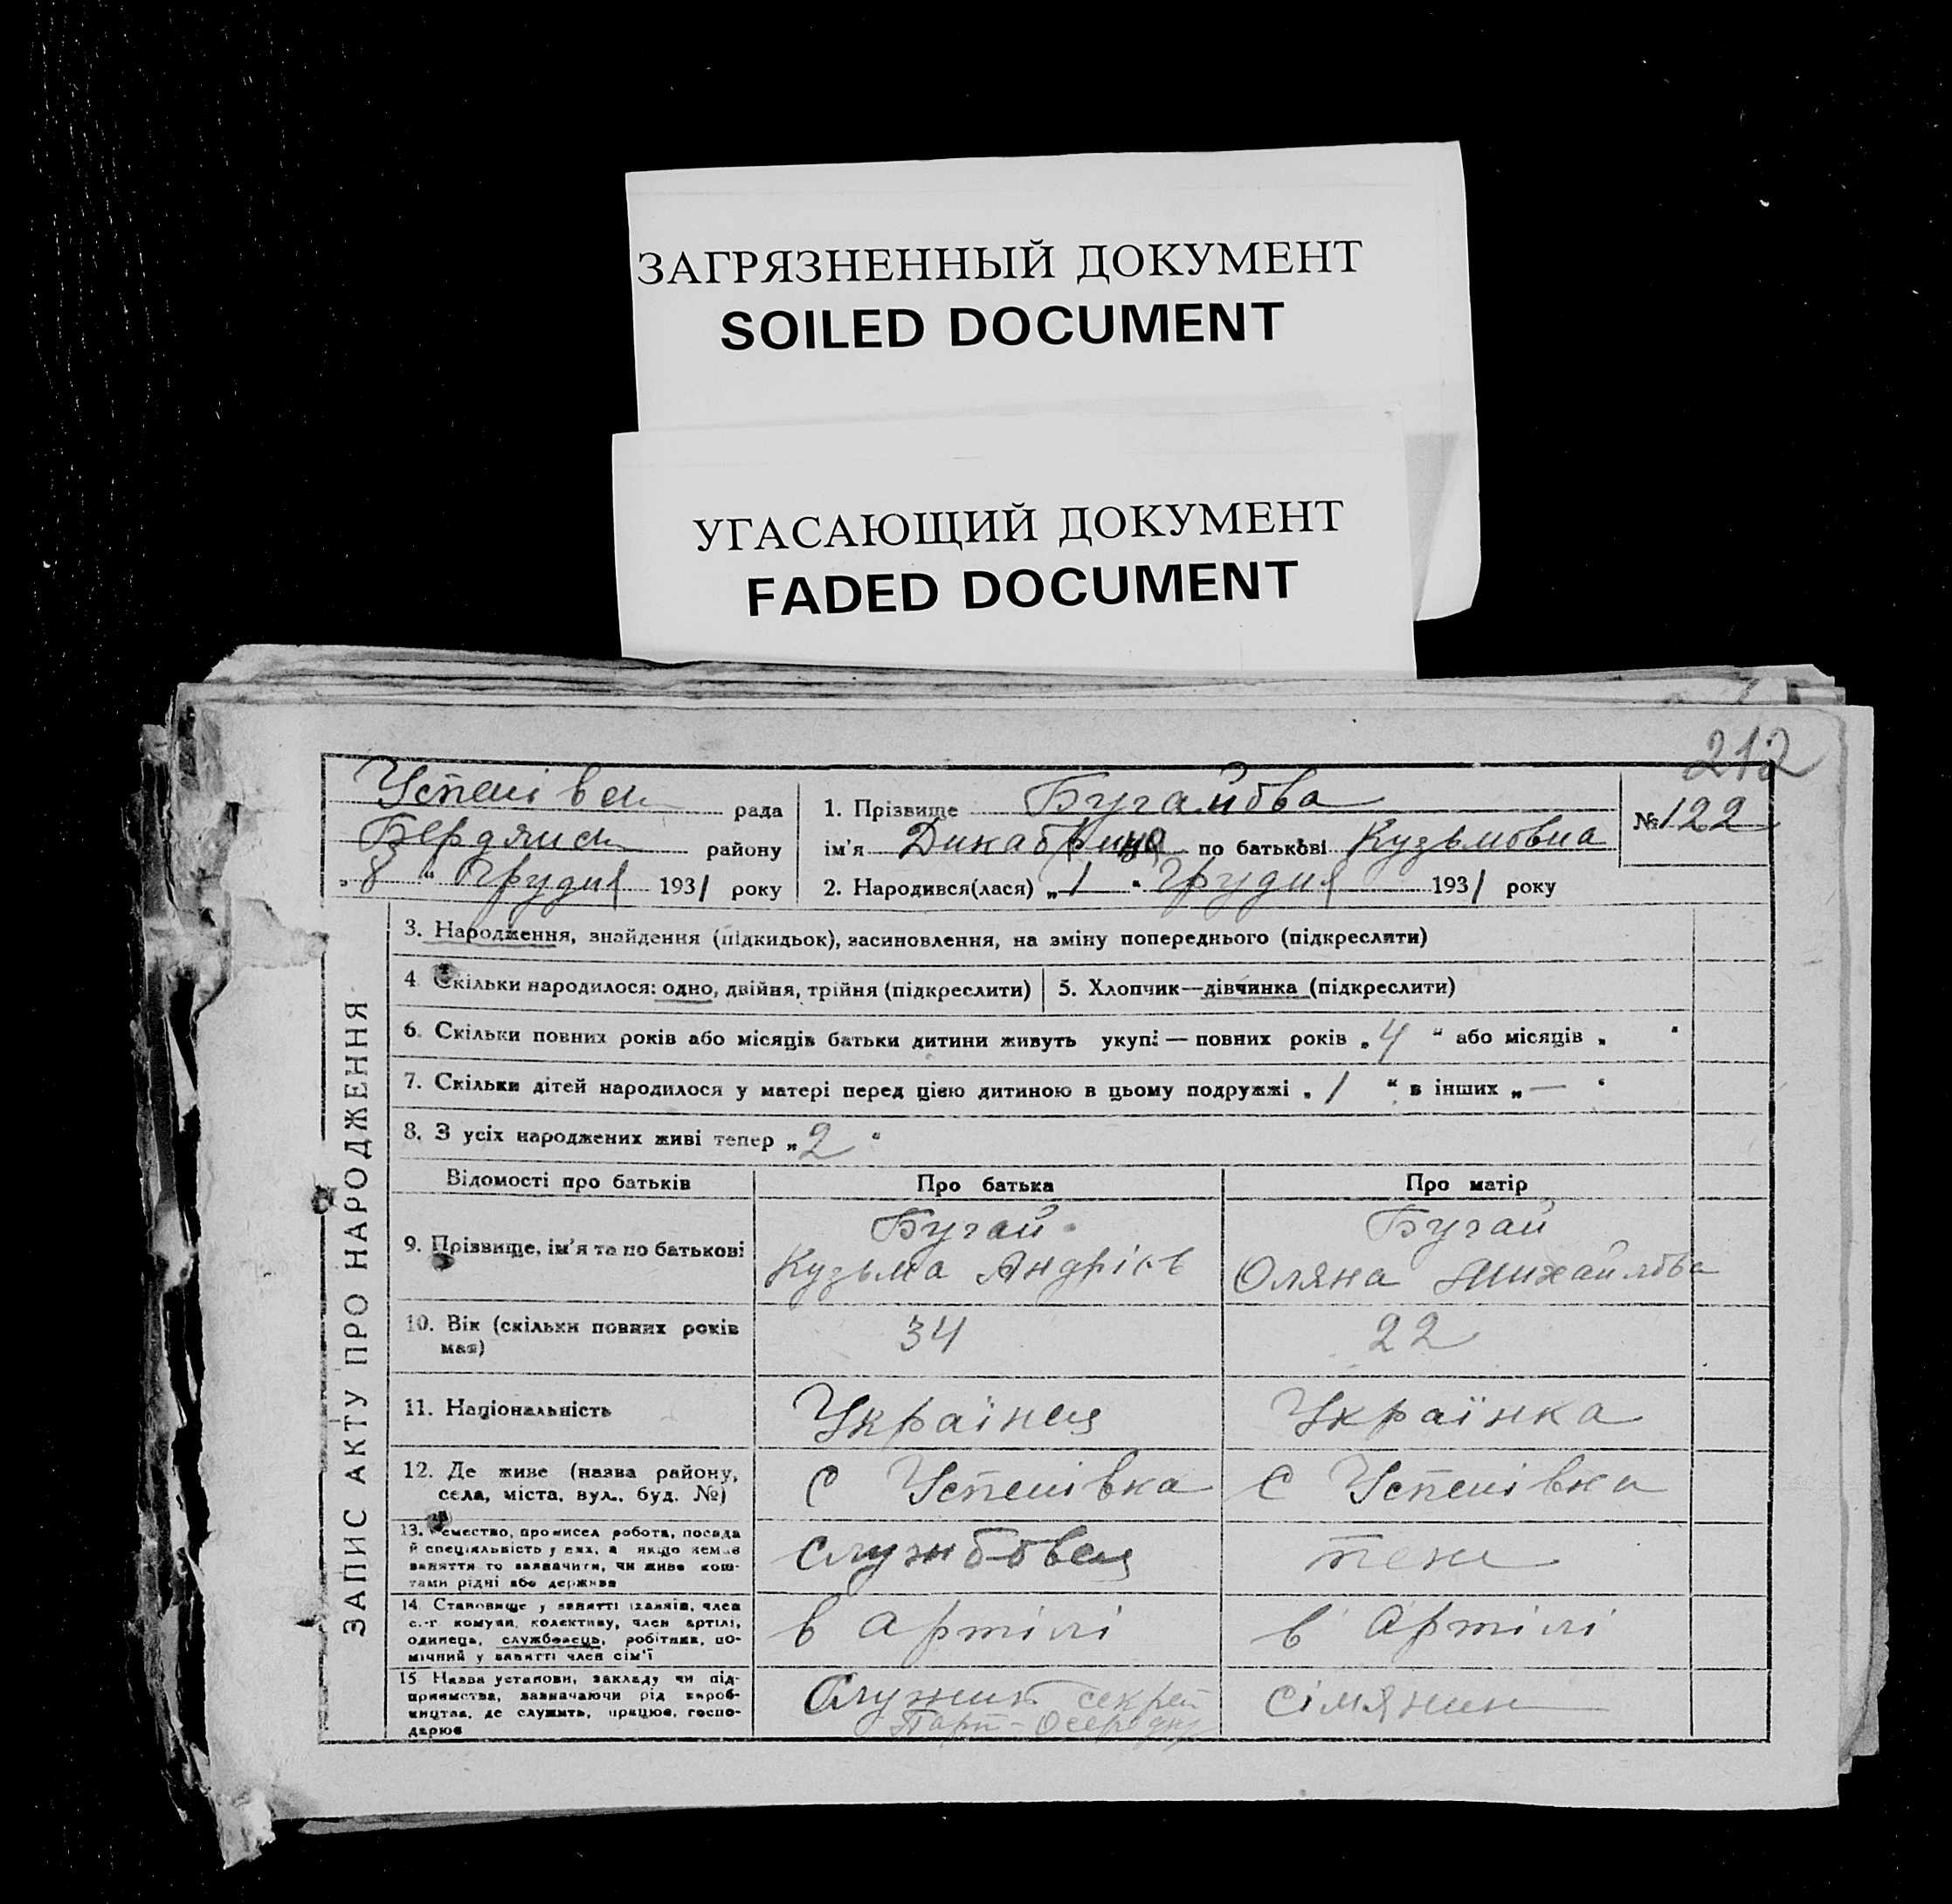 ЗАГРЯЗНЕННЫЙ ДОКУМЕНТ
SOILED DOCUMENT
УГАСАЮЩИЙ ДОКУМЕНТ
FADED DOCUMENT
212
Успенівськ рада
Бердянськ району
„8“ Грудня 1931 року
1. Прізвище Бугайова
ім’я по батькові Кузьмовна
2. Народився(лася) „1“ Грудня 1931 року
№ 122
ЗАПИС АКТУ ПРО НАРОДЖЕННЯ
3. Народження, знайдення (підкидьок), засиновлення, на зміну попереднього (підкреслити)
4 Скільки народилося: одно, двійня, трійня (підкреслити)
5. Хлопчик—дівчинка (підкреслити)
6. Скільки повних років або місяців батьки дитини живуть укупі — повних років „4“ або місяців „ “
7. Скільки дітей народилося у матері перед цією дитиною в цьому подружжі „1“ в інших „—“
8. З усіх народжених живі тепер „2“
Відомості про батьків
Про батька
Про матір
9. Прізвище, ім’я та по батькові
Бугай
Кузьма Андрієв
Бугай
Оляна Михайлова
10. Вік (скільки повних років
має)
34
22
11. Національність
Українець
Українка
12. Де живе (назва району,
села, міста, вул., буд. №)
с Успенівка
с Успенівка
13. Ремество, промисел робота, посада
й спеціяльність у них, а якщо немає
заняття то зазначити, чи живе кош-
тами рідні або держави
службовець
14. Становище у занятті (хазяїн, член
с.-г комуни, колективу, член артілі,
одинець, службовець, робітник, по-
мічний у занятті член сім’ї
в Артілі
в Артілі
15 Назва установи, закладу чи під-
приємства, зазначаючи рід вироб-
ництва, де служить, працює, госпо-
дарює
секрет
Парт-Осередку